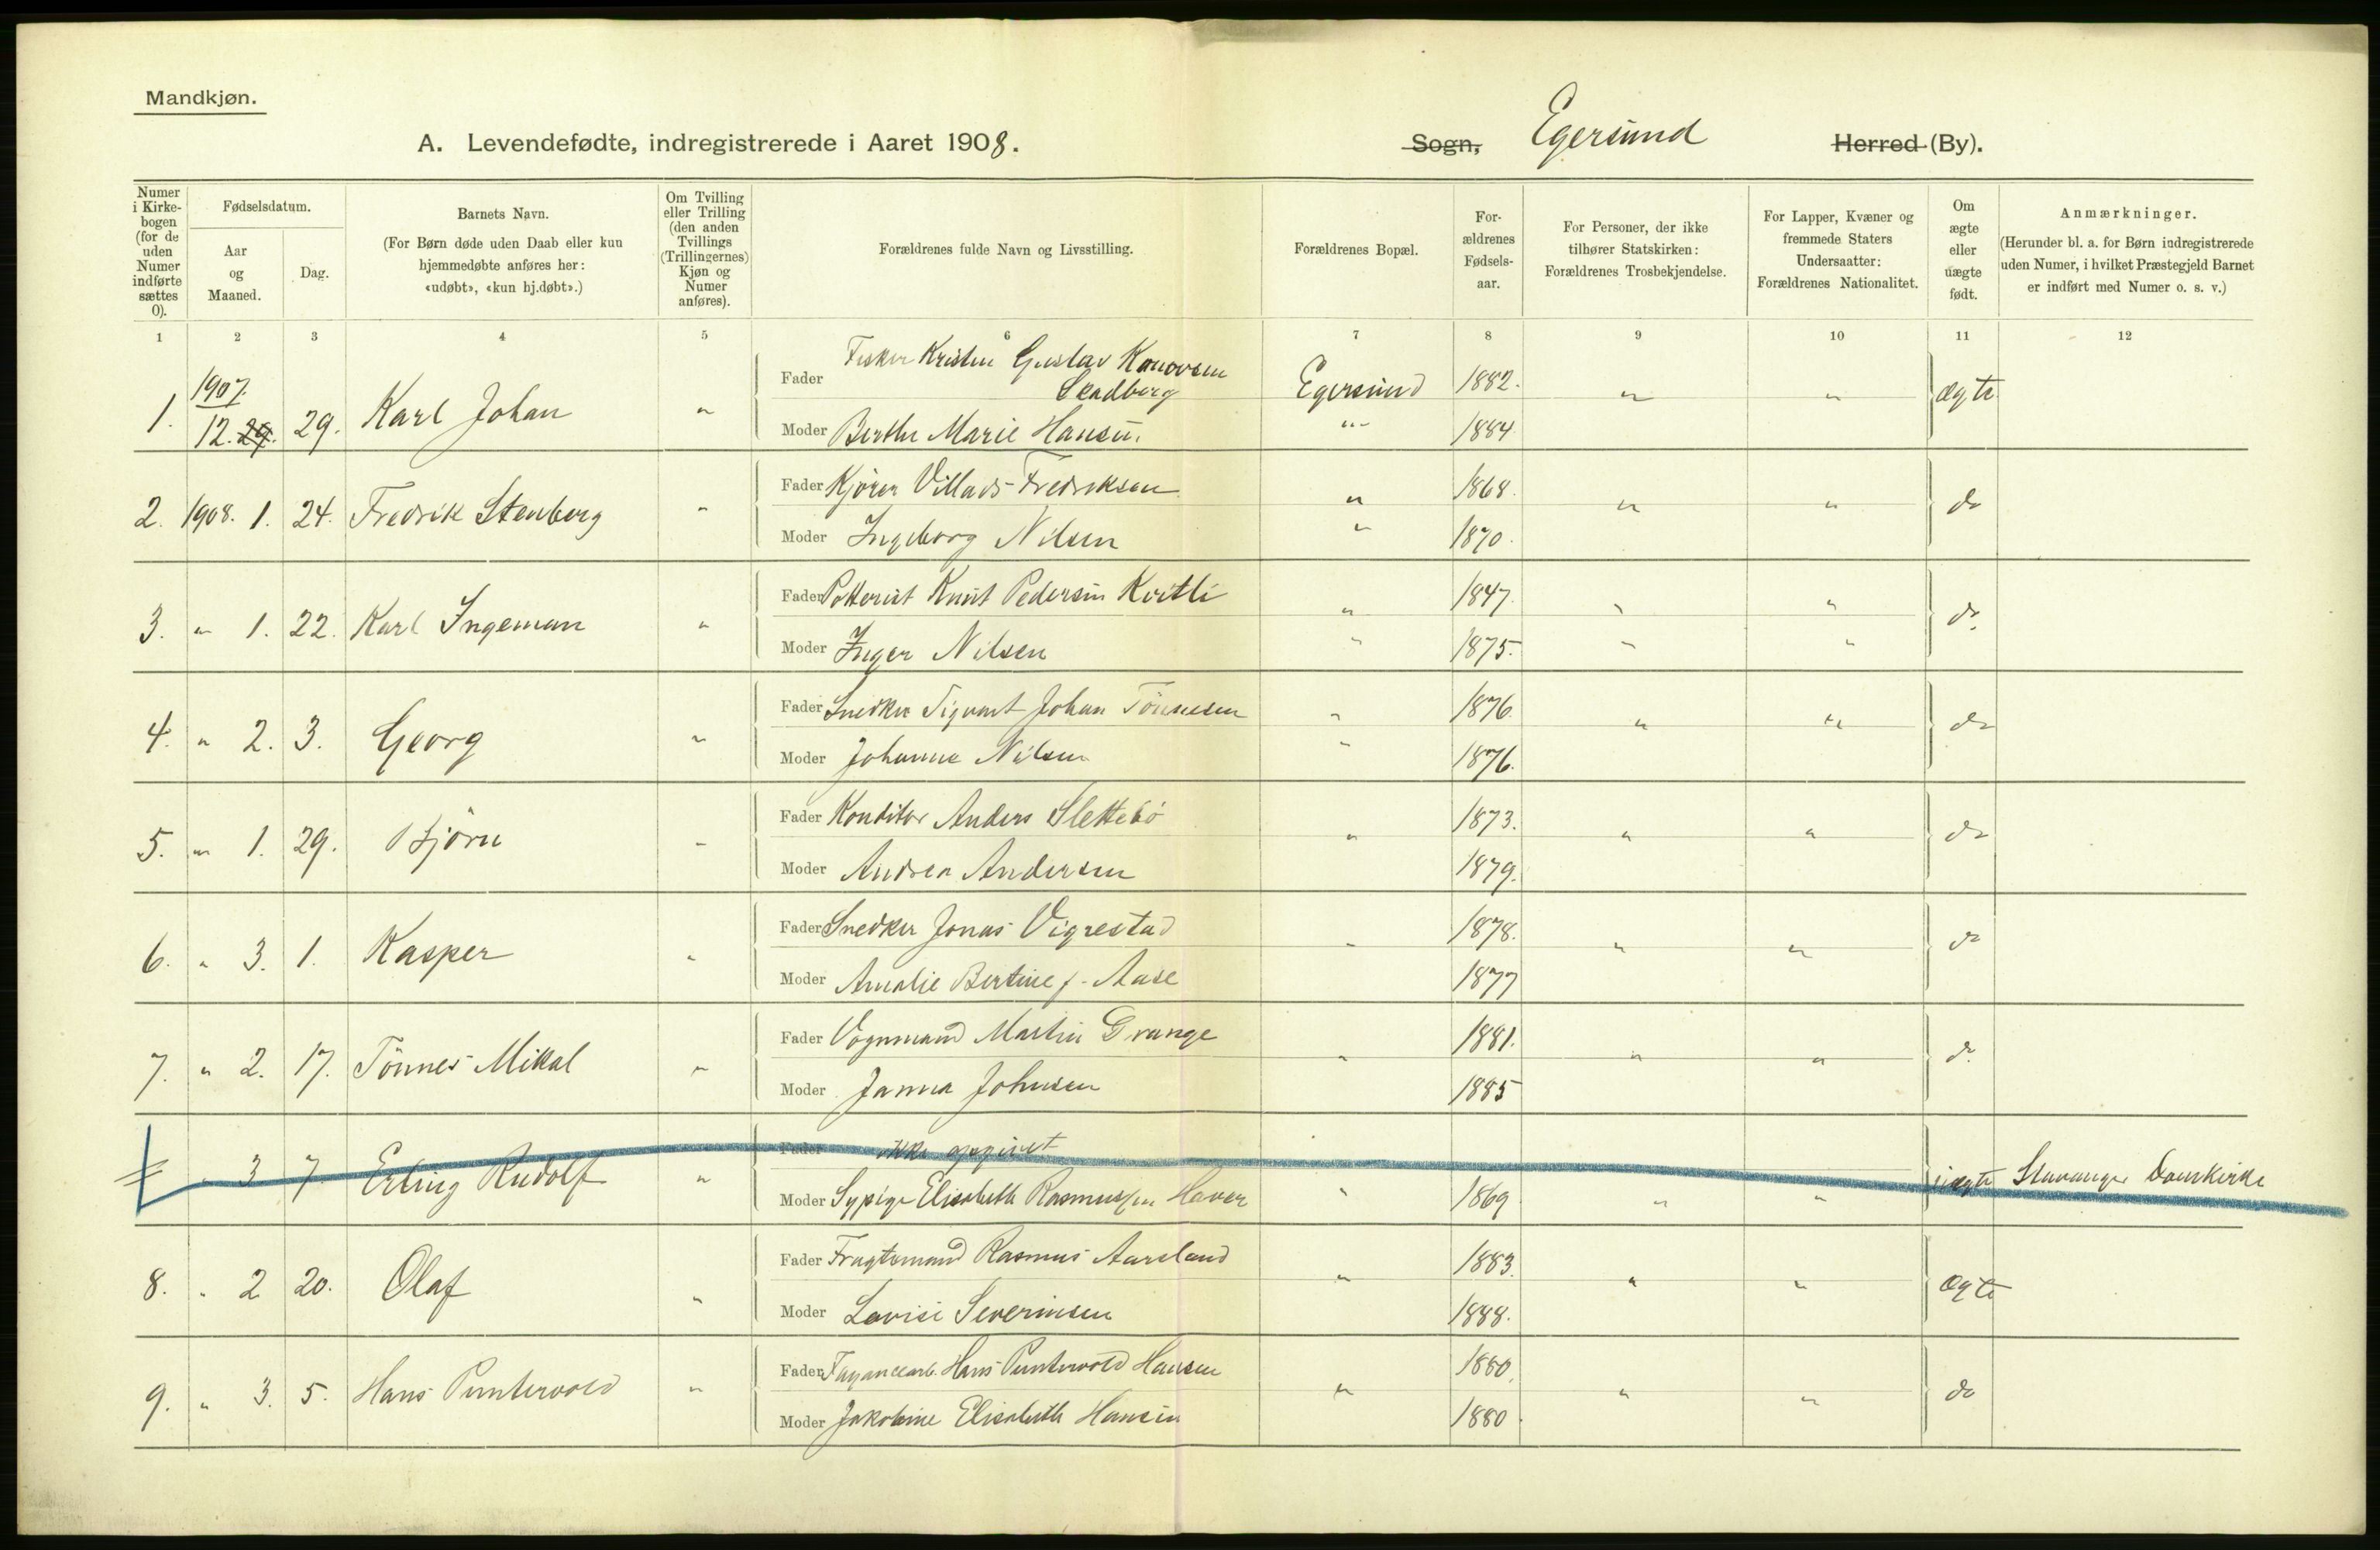 Mandkjøn.
A. Levendefødte, indregistrerede i Aaret 1908.
Sogn, Egersund Herred (By).
Numer i Kirkebogen (for de uden Numer indførte sættes 0).
Fødselsdatum.
Aar og Maaned.
Dag.
Barnets Navn.
(For Børn døde uden Daab eller kun hjemmedøbte anføres her: «udøbt», «kun hj.døbt».)
Om Tvilling eller Trilling (den anden Tvillings (Trillingernes) Kjøn og Numer anføres).
Forældrenes fulde Navn og Livsstilling.
Forældrenes Bopæl.
Forældrenes Fødselsaar.
For Personer, der ikke tilhører Statskirken: Forældrenes Trosbekjendelse.
For Lapper, Kvæner og fremmede Staters Undersaatter: Forældrenes Nationalitet.
Om ægte eller uægte født.
Anmærkninger.
(Herunder bl. a. for Børn indregistrerede uden Numer, i hvilket Præstegjeld Barnet er indført med Numer o. s. v.)
1 2 3 4 5 6 7 8 9 10 11 12
1. 1907. 12. 29. 29. Karl Johan " Fader Fisker Kristen Gustav Egersund 1882. " " ægte
Moder Berthe Marie Hansen. " 1884
2. 1908. 1. 24. Fredrik Stenberg " Fader Kjører Villads Fredriksen " 1868. " " do
Moder Ingeborg Nilsen " 1870.
3. " 1. 22. Karl Ingeman " Fader Knut Pedersen " 1847. " " do.
Moder Inger Nilsen " 1875. " "
4. " 2. 3. Georg " Fader Snedker Sigvart Johan Tönnesen " 1876. " " do
Moder Johanne Nilsen " 1876.
5. " 1. 29. Björn " Fader Konditor Anders Slettebö " 1873. " " do
Moder Andrea Andersen 1879.
6. " 3. 1. Kasper " Fader Snedker Jonas Vigrestad " 1878. " " do
Moder Amalie Bertine f. Aase 1877
7. " 2. 17. Tönnes Mikal " Fader Vognmand Martin Grange " 1881. " " do.
Moder Janna Johnsen 1885
" 3 7 Erling Rudolf " Fader ikke opgivet uægte Stavanger Domkirke
Moder Sypige Elisabeth Rasmussen Haver " 1869 " "
8. " 2 20. Olaf " Fader Fragtemand Rasmus Aarsland " 1883. " " ægte
Moder Lovise Severinsen 1888.
9. " 3. 5. Hans Puntervold " Fader Fayancearb. Hans Puntervold Hansen " 1880. " " do
Moder Jakobine Elisabeth Hansen 1880.